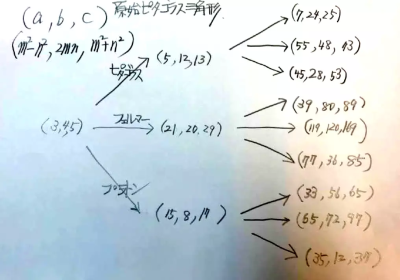 (a, b, c) 原始ピタゴラス三角形
(m²-n², 2mn, m²+n²)
(7,24,25)
(5,12,13)
(55,48,73)
ピタゴラス
(45,28,53)
(39,80,89)
(3,4,5) フェルマー (21,20,29) (119,120,169)
(77,36,85)
プラトン
(33,56,65)
(15,8,17) (65,72,97)
(35,12,37)